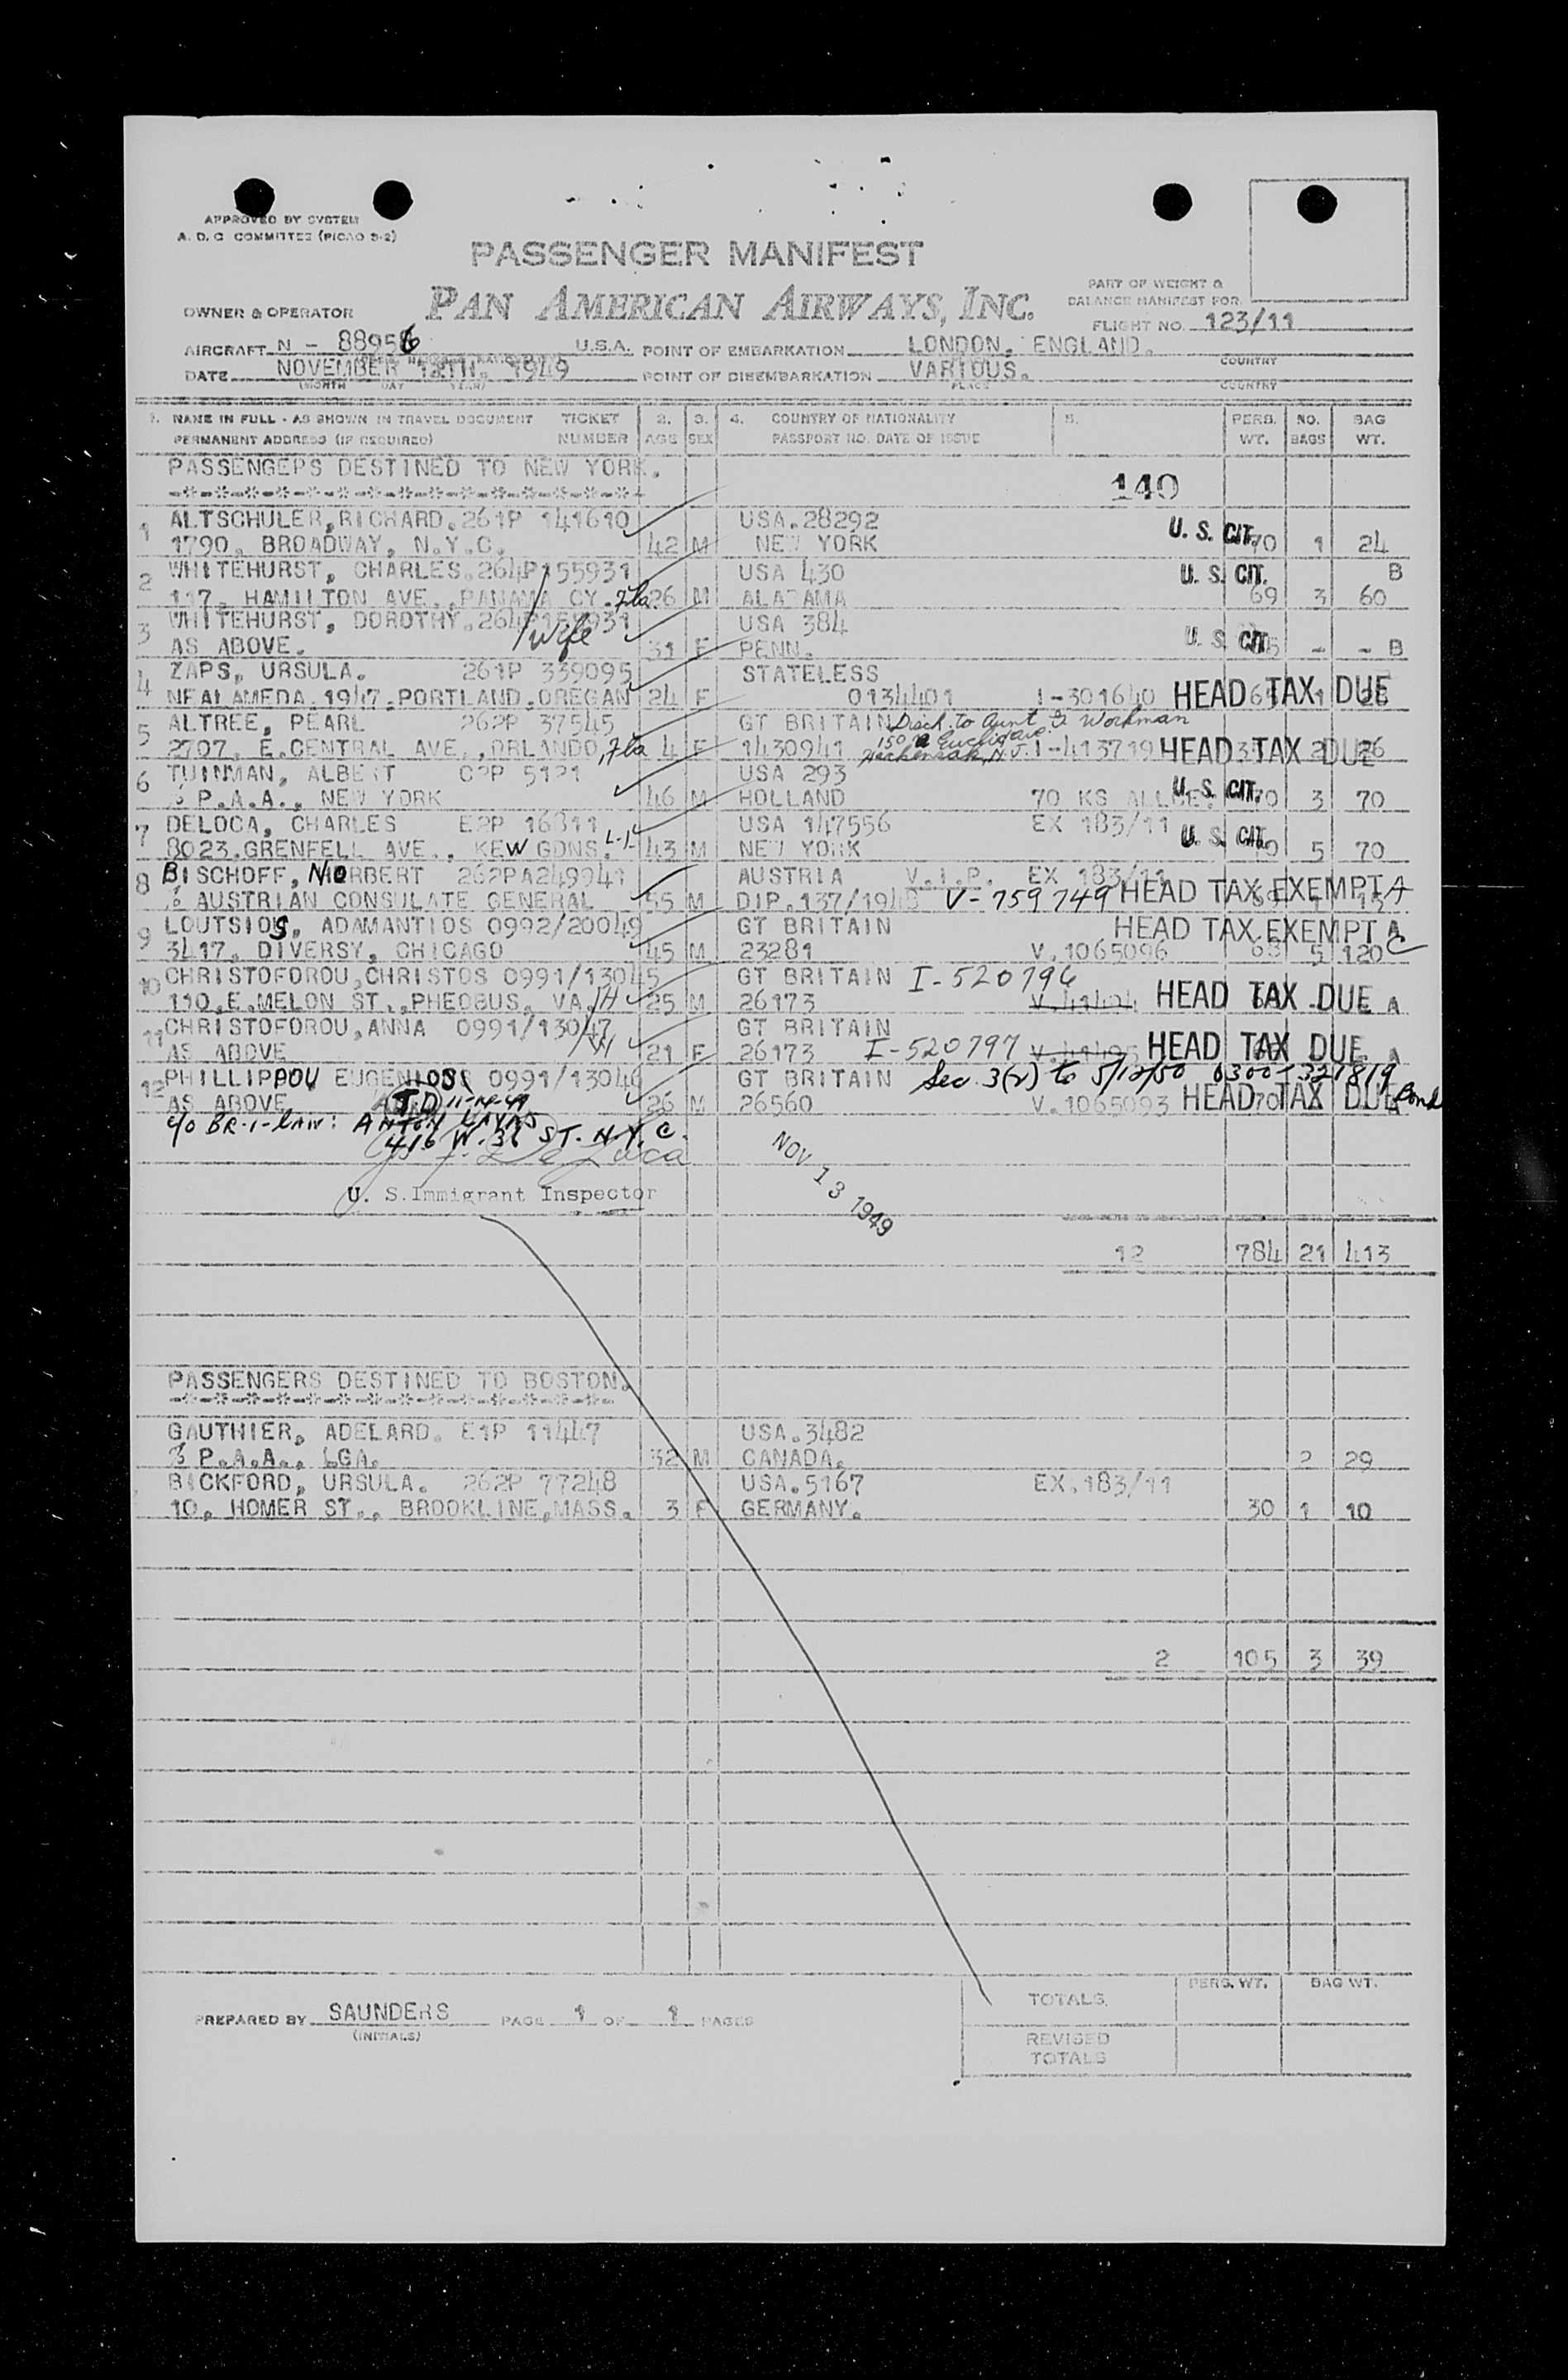 APPROVED BY SYSTEM
A. D. C COMMITTEE (PICAO 3-2)
PASSENGER MANIFEST
PAN AMERICAN AIRWAYS, INC.
PART OF WEIGHT &
BALANCE MANIFEST FOR
OWNER & OPERATOR
FLIGHT NO. 123/11
AIRCRAFT N - 88956 U.S.A. POINT OF EMBARKATION LONDON. ENGLAND.
COUNTRY
DATE NOVEMBER 12TH. 1949 POINT OF DISEMBARKATION VARIOUS.
(MONTH DAY YEAR) PLACE COUNTRY
1. NAME IN FULL - AS SHOWN IN TRAVEL DOCUMENT TICKET 2. 3. 4. COUNTRY OF NATIONALITY 5. PERS. NO. BAG
PERMANENT ADDRESS (IF REQUIRED) NUMBER AGE SEX PASSPORT NO. DATE OF ISSUE WT. BAGS WT.
PASSENGERS DESTINED TO NEW YORK.
140
1 ALTSCHULER,RICHARD.261P 141610 USA.28292 U. S. CIT.
1790. BROADWAY, N.Y.C. 42 M NEW YORK 70 1 24
2 WHITEHURST, CHARLES.264P155931 USA 430 U. S. CIT. B
117. HAMILTON AVE.,PANAMA CY. Fla. 26 M ALABAMA 69 3 60
3 WHITEHURST, DOROTHY.264P155931 USA 384 U. S. CIT.
AS ABOVE. wife 31 F PENN. - - B
4 ZAPS, URSULA. 261P 339095 STATELESS
NEALAMEDA.1947.PORTLAND.OREGAN 24 F 0134401 I-301640 HEAD TAX DUE
5 ALTREE, PEARL 262P 37545 GT BRITAIN Disch. to Aunt Workman
2707. E.CENTRAL AVE.,ORLANDO, Fla 4 F 1430941 150 Euclid ave. Hackensak, N.J. I-413719 HEAD TAX DUE 26
6 TUINMAN, ALBERT 02P 5121 USA 293 U. S. CIT.
% P.A.A., NEW YORK 46 M HOLLAND 70 KS ALLCE. 70 3 70
7 DELOCA, CHARLES E2P 16811 USA 147556 EX 183/11 U. S. CIT.
8023.GRENFELL AVE., KEW GDNS. L-1 43 M NEW YORK 5 70
8 BISCHOFF, NORBERT 262PA249941 AUSTRIA V.I.P. EX 183/11
% AUSTRIAN CONSULATE GENERAL 55 M DIP.137/1948 V-759749 HEAD TAX EXEMPT A
9 LOUTSIOS, ADAMANTIOS 0992/20049 GT BRITAIN HEAD TAX EXEMPT A
3417. DIVERSY, CHICAGO 45 M 23281 V.1065096 63 5 120 C
10 CHRISTOFOROU,CHRISTOS 0991/13045 GT BRITAIN I-520796
110.E.MELON ST.,PHEOBUS, VA. H 25 M 26173 V.41494 HEAD TAX DUE A
11 CHRISTOFOROU,ANNA 0991/13047 GT BRITAIN
AS ABOVE H 21 F 26173 I-520797 V.41495 HEAD TAX DUE A
12 PHILLIPPOU EUGENIOS 0991/13046 GT BRITAIN Sec. 3(2) to 5/12/50 0300-321819
AS ABOVE TD 11-14-49 26 M 26560 V.1065093 HEAD TAX DUE Bond
c/o BR-I-LAW: ANTON
416 W. 36 ST. N.Y.C.
De Luca
NOV 13 1949
U. S. Immigrant Inspector
12 784 21 413
PASSENGERS DESTINED TO BOSTON.
GAUTHIER, ADELARD. E1P 11447 USA.3482
% P.A.A., LGA. 32 M CANADA. 2 29
BICKFORD, URSULA. 262P 77248 USA.5167 EX.183/11
10. HOMER ST., BROOKLINE,MASS. 3 F GERMANY. 30 1 10
2 105 3 39
PERS. WT. BAG WT.
TOTALS
PREPARED BY SAUNDERS PAGE 1 OF 1 PAGES
(INITIALS)
REVISED
TOTALS